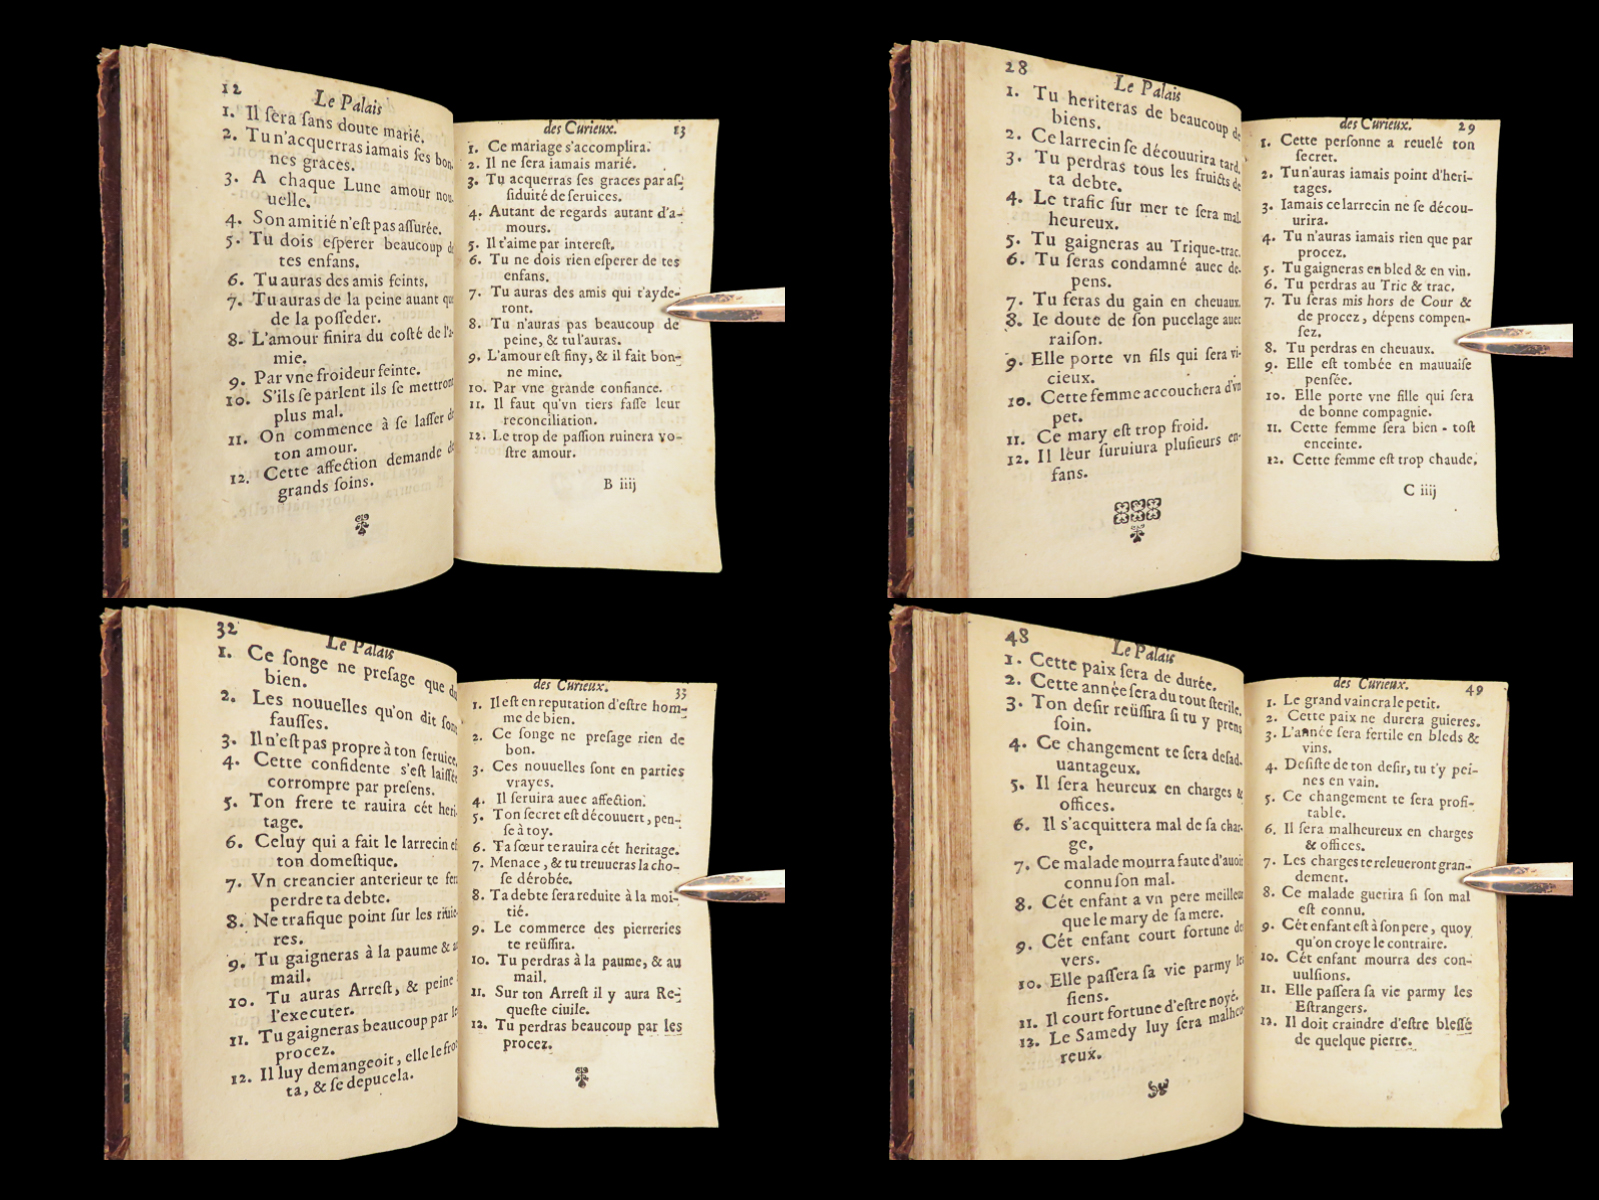 12
Le Palais
1. Il ſera ſans doute marié.
2. Tu n'acquerras iamais ſes bon-
nes graces.
3. A chaque Lune amour nou-
uelle.
4. Son amitié n'eſt pas aſſurée.
5. Tu dois eſperer beaucoup de
tes enfans.
6. Tu auras des amis feints.
7. Tu auras de la peine auant que
de la poſſeder.
8. L'amour finira du coſté de l'a-
mie.
9. Par vne froideur feinte.
10. S'ils ſe parlent ils ſe mettront
plus mal.
11. On commence à ſe laſſer de
ton amour.
12. Cette affection demande de
grands ſoins.
des Curieux. 13
1. Ce mariage s'accomplira.
2. Il ne ſera iamais marié.
3. Tu acquerras ſes graces par aſ-
ſiduité de ſeruices.
4. Autant de regards autant d'a-
mours.
5. Il t'aime par intereſt.
6. Tu ne dois rien eſperer de tes
enfans.
7. Tu auras des amis qui t'ayde-
ront.
8. Tu n'auras pas beaucoup de
peine, & tu l'auras.
9. L'amour eſt finy, & il fait bon-
ne mine.
10. Par vne grande confiance.
11. Il faut qu'vn tiers faſſe leur
reconciliation.
12. Le trop de paſſion ruinera vo-
ſtre amour.
B iiij
28
Le Palais
1. Tu heriteras de beaucoup de
biens.
2. Ce larrecin ſe découurira tard.
3. Tu perdras tous les fruicts de
ta debte.
4. Le trafic ſur mer te ſera mal-
heureux.
5. Tu gaigneras au Trique-trac.
6. Tu ſeras condamné auec de-
pens.
7. Tu feras du gain en cheuaux.
8. Ie doute de ſon pucelage auec
raiſon.
9. Elle porte vn fils qui ſera vi-
cieux.
10. Cette femme accouchera d'vn
pet.
11. Ce mary eſt trop froid.
12. Il leur ſuruiura pluſieurs en-
fans.
des Curieux. 29
1. Cette perſonne a reuelé ton
ſecret.
2. Tu n'auras iamais point d'heri-
tages.
3. Iamais ce larrecin ne ſe décou-
urira.
4. Tu n'auras iamais rien que par
procez.
5. Tu gaigneras en bled & en vin.
6. Tu perdras au Tric & trac.
7. Tu ſeras mis hors de Cour &
de procez, dépens compen-
ſez.
8. Tu perdras en cheuaux.
9. Elle eſt tombée en mauuaiſe
penſée.
10. Elle porte vne fille qui ſera
de bonne compagnie.
11. Cette femme ſera bien-toſt
enceinte.
12. Cette femme eſt trop chaude.
C iiij
32
Le Palais
1. Ce ſonge ne preſage que du
bien.
2. Les nouuelles qu'on dit ſont
fauſſes.
3. Il n'eſt pas propre à ton ſeruice.
4. Cette confidente s'eſt laiſſée
corrompre par preſens.
5. Ton frere te rauira cét heri-
tage.
6. Celuy qui a fait le larrecin eſt
ton domeſtique.
7. Vn creancier anterieur te fera
perdre ta debte.
8. Ne trafique point ſur les riuie-
res.
9. Tu gaigneras à la paume & au
mail.
10. Tu auras Arreſt, & peine à
l'executer.
11. Tu gaigneras beaucoup par le
procez.
12. Il luy demangeoit, elle le frot-
ta, & ſe depucela.
des Curieux. 33
1. Il eſt en reputation d'eſtre hom-
me de bien.
2. Ce ſonge ne preſage rien de
bon.
3. Ces nouuelles ſont en parties
vrayes.
4. Il ſeruira auec affection.
5. Ton ſecret eſt découuert, pen-
ſe à toy.
6. Ta ſœur te rauira cét heritage.
7. Menace, & tu treuueras la cho-
ſe dérobée.
8. Ta debte ſera reduite à la moi-
tié.
9. Le commerce des pierreries
te reüſſira.
10. Tu perdras à la paume, & au
mail.
11. Sur ton Arreſt il y aura Re-
queſte ciuile.
12. Tu perdras beaucoup par les
procez.
48
Le Palais
1. Cette paix ſera de durée.
2. Cette année ſera du tout ſterile.
3. Ton deſir reüſſira ſi tu y prens
ſoin.
4. Ce changement te ſera deſad-
uantageux.
5. Il ſera heureux en charges &
offices.
6. Il s'acquittera mal de ſa char-
ge.
7. Ce malade mourra faute d'auoir
connu ſon mal.
8. Cét enfant a vn pere meilleur
que le mary de ſa mere.
9. Cét enfant court fortune de
vers.
10. Elle paſſera ſa vie parmy les
ſiens.
11. Il court fortune d'eſtre noyé.
12. Le Samedy luy ſera malheu-
reux.
des Curieux. 49
1. Le grand vaincra le petit.
2. Cette paix ne durera guieres.
3. L'année ſera fertile en bleds &
vins.
4. Deſiſte de ton deſir, tu t'y pei-
nes en vain.
5. Ce changement te ſera profi-
table.
6. Il ſera malheureux en charges
& offices.
7. Les charges te releueront gran-
dement.
8. Ce malade guerira ſi ſon mal
eſt connu.
9. Cét enfant eſt à ſon pere, quoy
qu'on croye le contraire.
10. Cét enfant mourra des con-
uulſions.
11. Elle paſſera ſa vie parmy les
Eſtrangers.
12. Il doit craindre d'eſtre bleſſé
de quelque pierre.